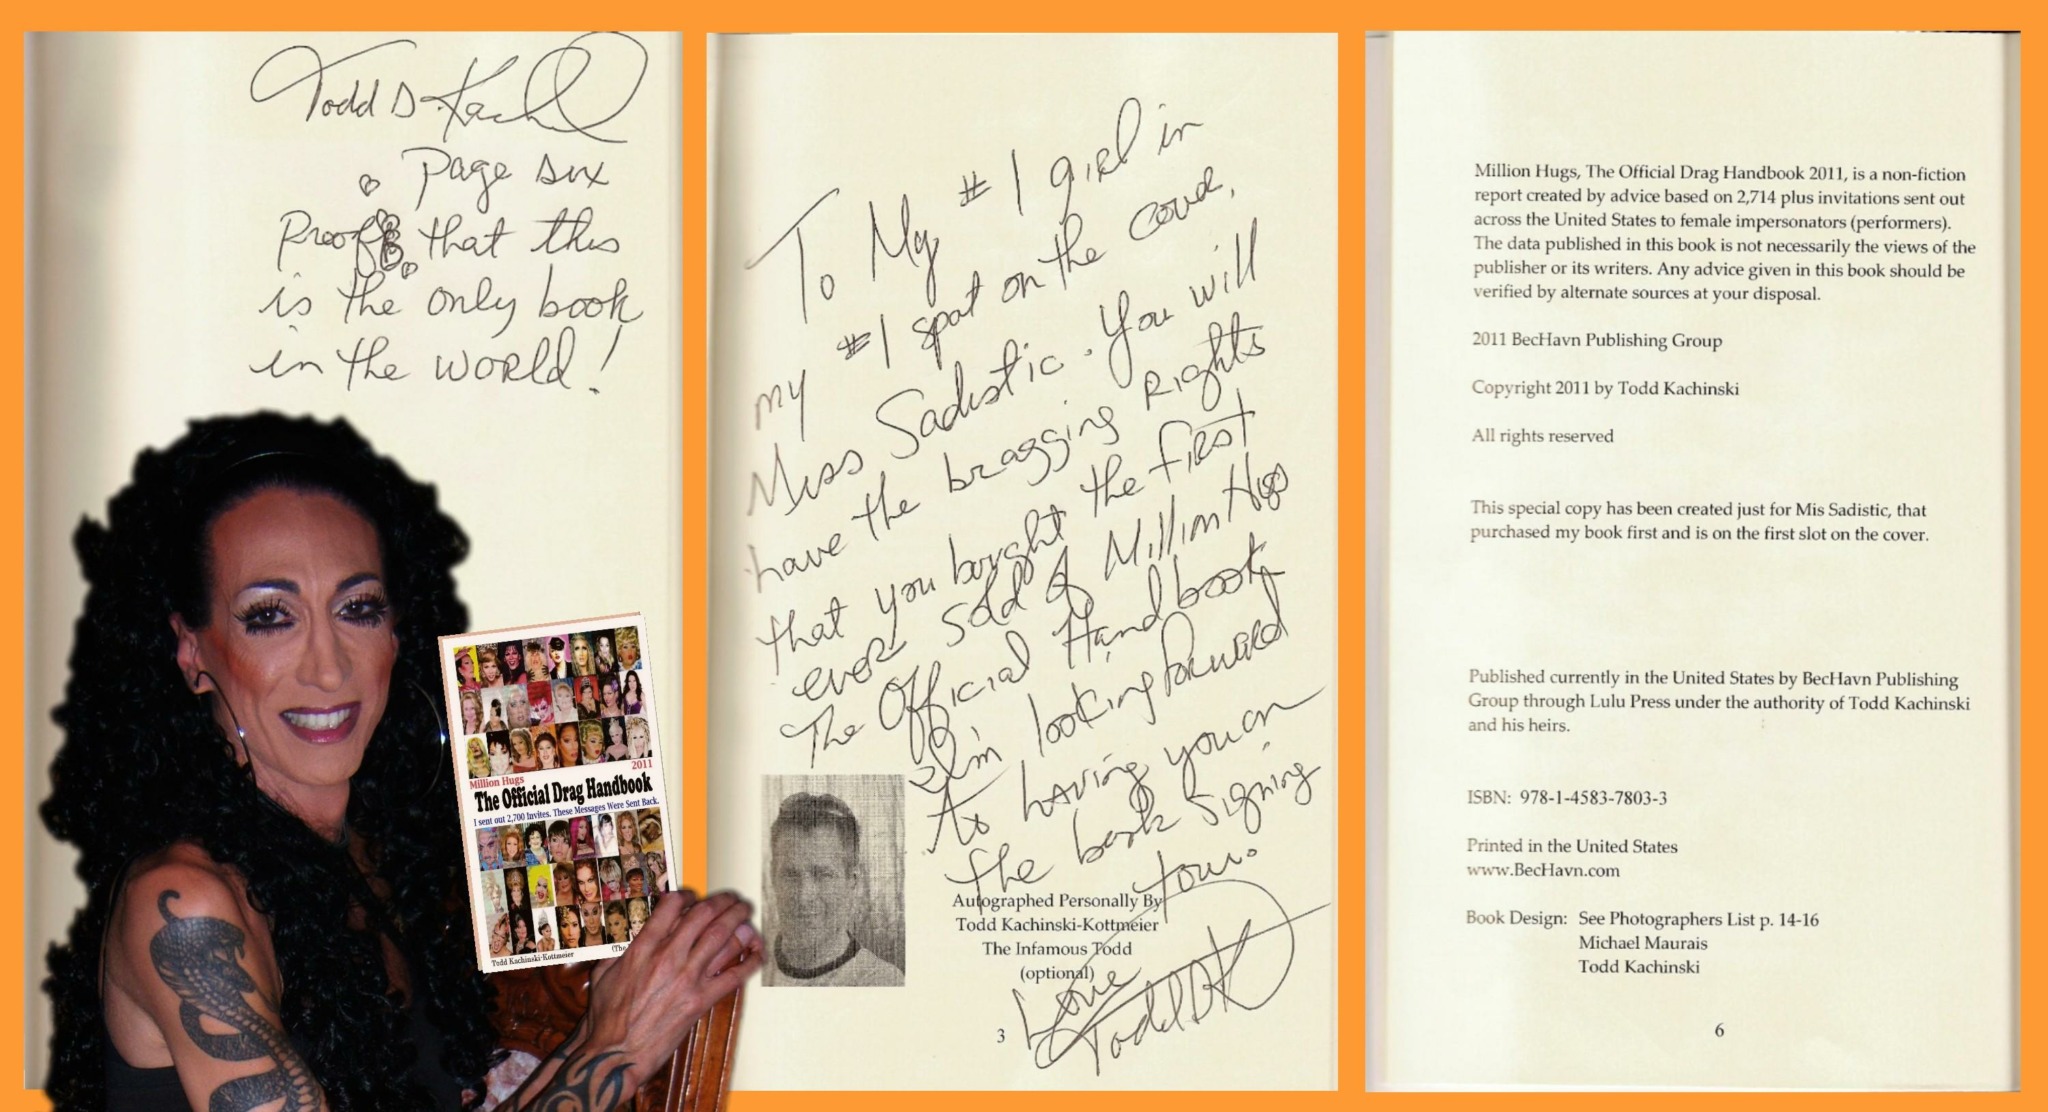 Todd D Kach
Page six
Proof that this
is the only book
in the world!
Million Hugs
2011
The Official Drag Handbook
I sent out 2,700 Invites. These Messages Were Sent Back.
Todd Kachinski-Kottmeier
(The
To My #1 girl in
my #1 spot on the cover,
Miss Sadistic. You will
have the bragging Rights
that you bought the first
ever sold of Million Hugs
The Official Handbook
I'm looking forward
to having you on
the book signing
tour.
Autographed Personally By
Todd Kachinski-Kottmeier
The Infamous Todd
(optional)
Love
Todd DK
3
Million Hugs, The Official Drag Handbook 2011, is a non-fiction
report created by advice based on 2,714 plus invitations sent out
across the United States to female impersonators (performers).
The data published in this book is not necessarily the views of the
publisher or its writers. Any advice given in this book should be
verified by alternate sources at your disposal.
2011 BecHavn Publishing Group
Copyright 2011 by Todd Kachinski
All rights reserved
This special copy has been created just for Mis Sadistic, that
purchased my book first and is on the first slot on the cover.
Published currently in the United States by BecHavn Publishing
Group through Lulu Press under the authority of Todd Kachinski
and his heirs.
ISBN: 978-1-4583-7803-3
Printed in the United States
www.BecHavn.com
Book Design: See Photographers List p. 14-16
Michael Maurais
Todd Kachinski
6